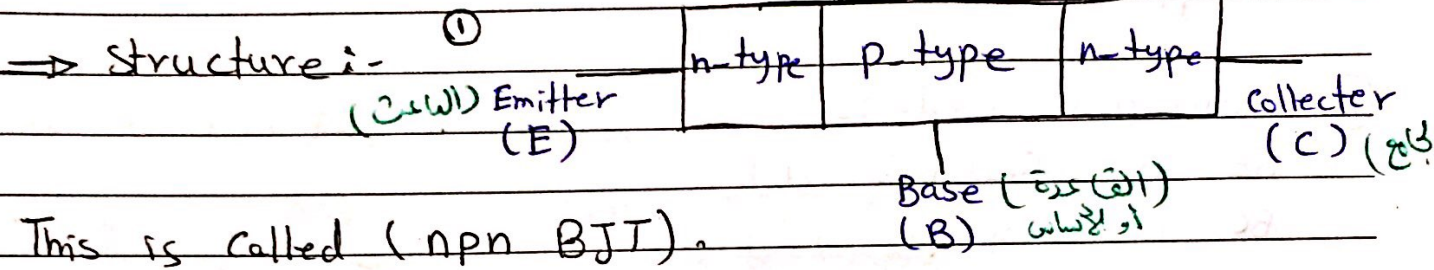 ①
⇒ Structure :-
n-type p-type n-type
(الباعث) Emitter
(E)
Collecter
(C) (الجامع
Base (القاعدة)
(B) أو الأساس
This is called (npn BJT).